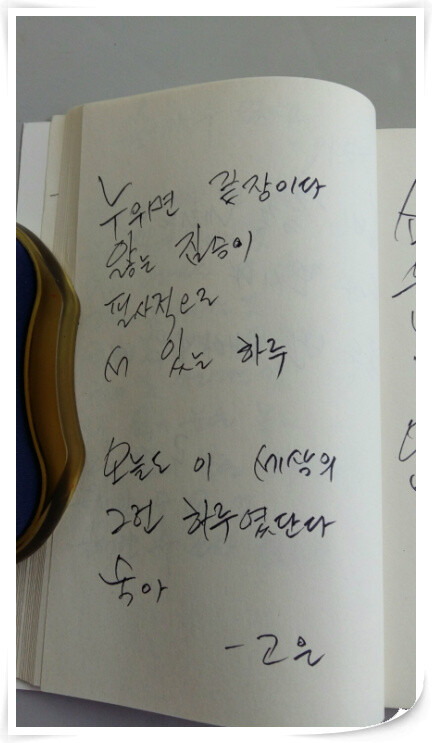 누우면 끝장이다
앓는 짐승이
필사적으로
서 있는 하루
오늘도 이 세상의
그런 하루였단다
숙아
- 고은